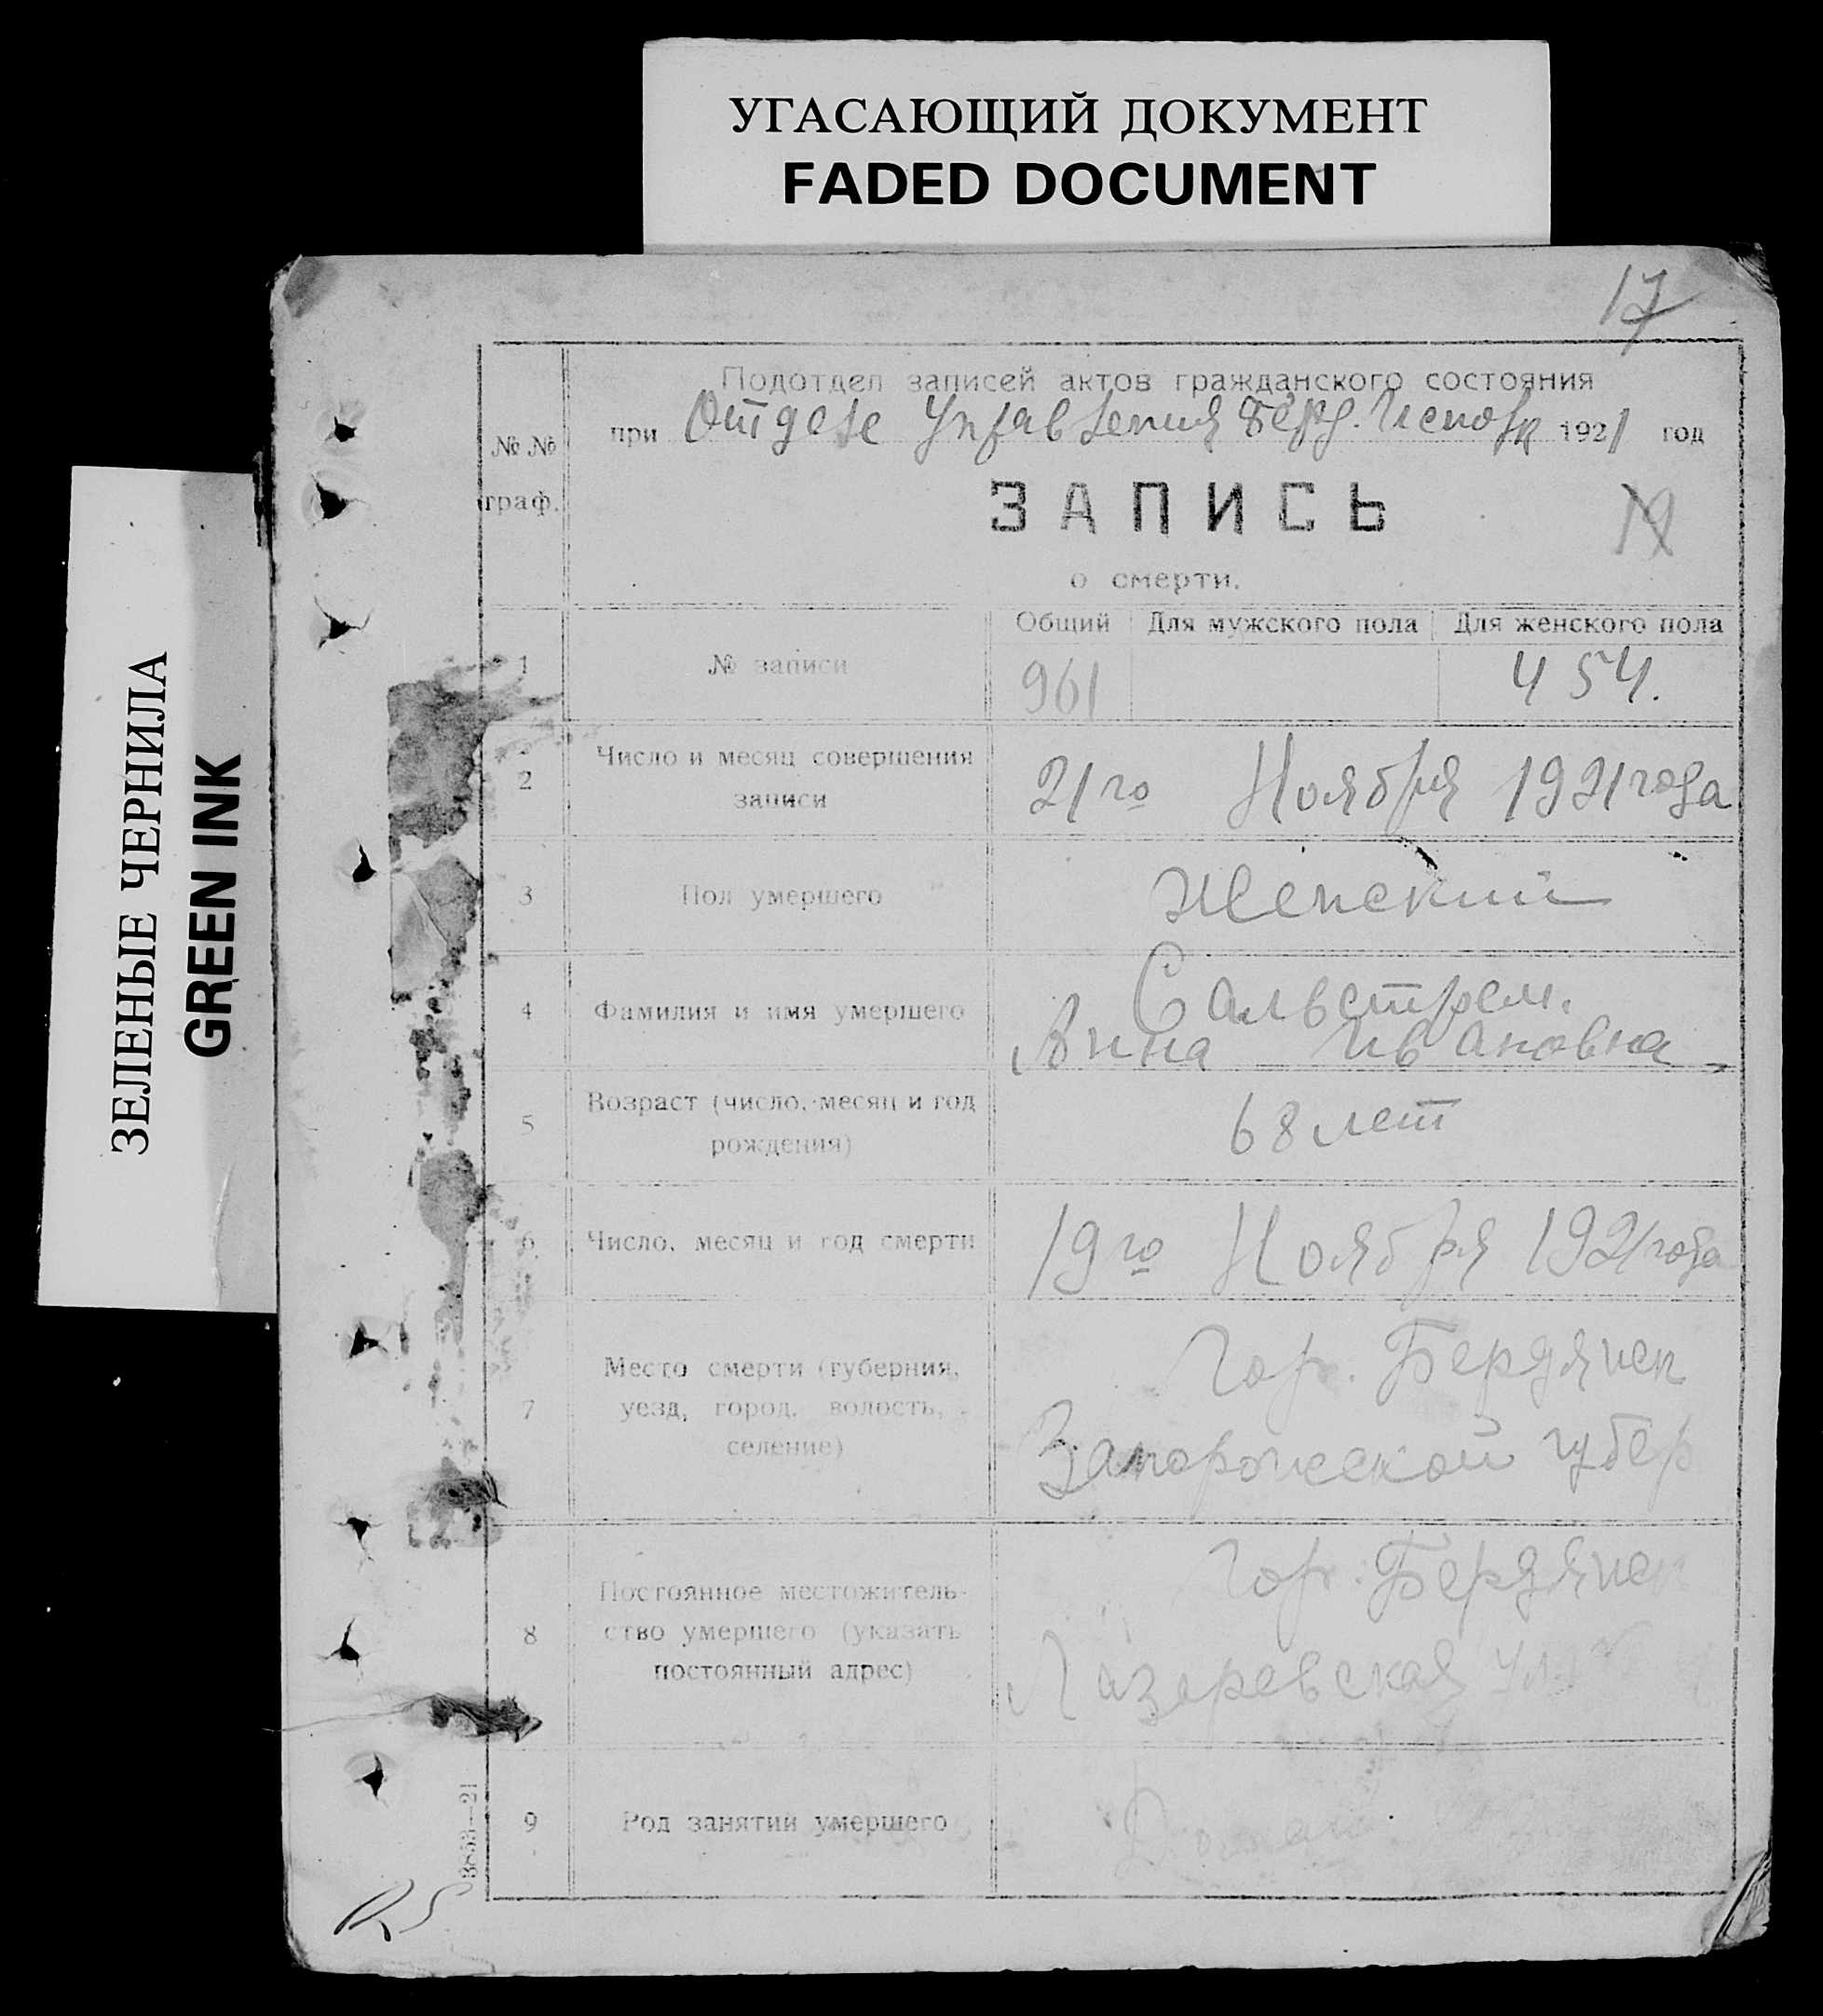 УГАСАЮЩИЙ ДОКУМЕНТ
FADED DOCUMENT
ЗЕЛЕНЫЕ ЧЕРНИЛА
GREEN INK
17
Подотдел записей актов гражданского состояния
при Отделе Управления Берд. Исполк 1921 год
№ №
граф.
ЗАПИСЬ
о смерти.
Общий Для мужского пола Для женского пола
1 № записи 961 454.
2 Число и месяц совершения
записи
21го Ноября 1921 года
3 Пол умершего Женский
4 Фамилия и имя умершего
Сальстрем.
Анна Ивановна
5 Возраст (число, месяц и год
рождения)
68 лет
6 Число, месяц и год смерти 19го Ноября 1921 года
7 Место смерти (губерния,
уезд, город, волость,
селение)
Гор. Бердянск
Запорожской губер
8 Постоянное местожитель-
ство умершего (указать
постоянный адрес)
Гор. Бердянск
Лазаревская ул.
9 Род занятий умершего
3853—21
RS